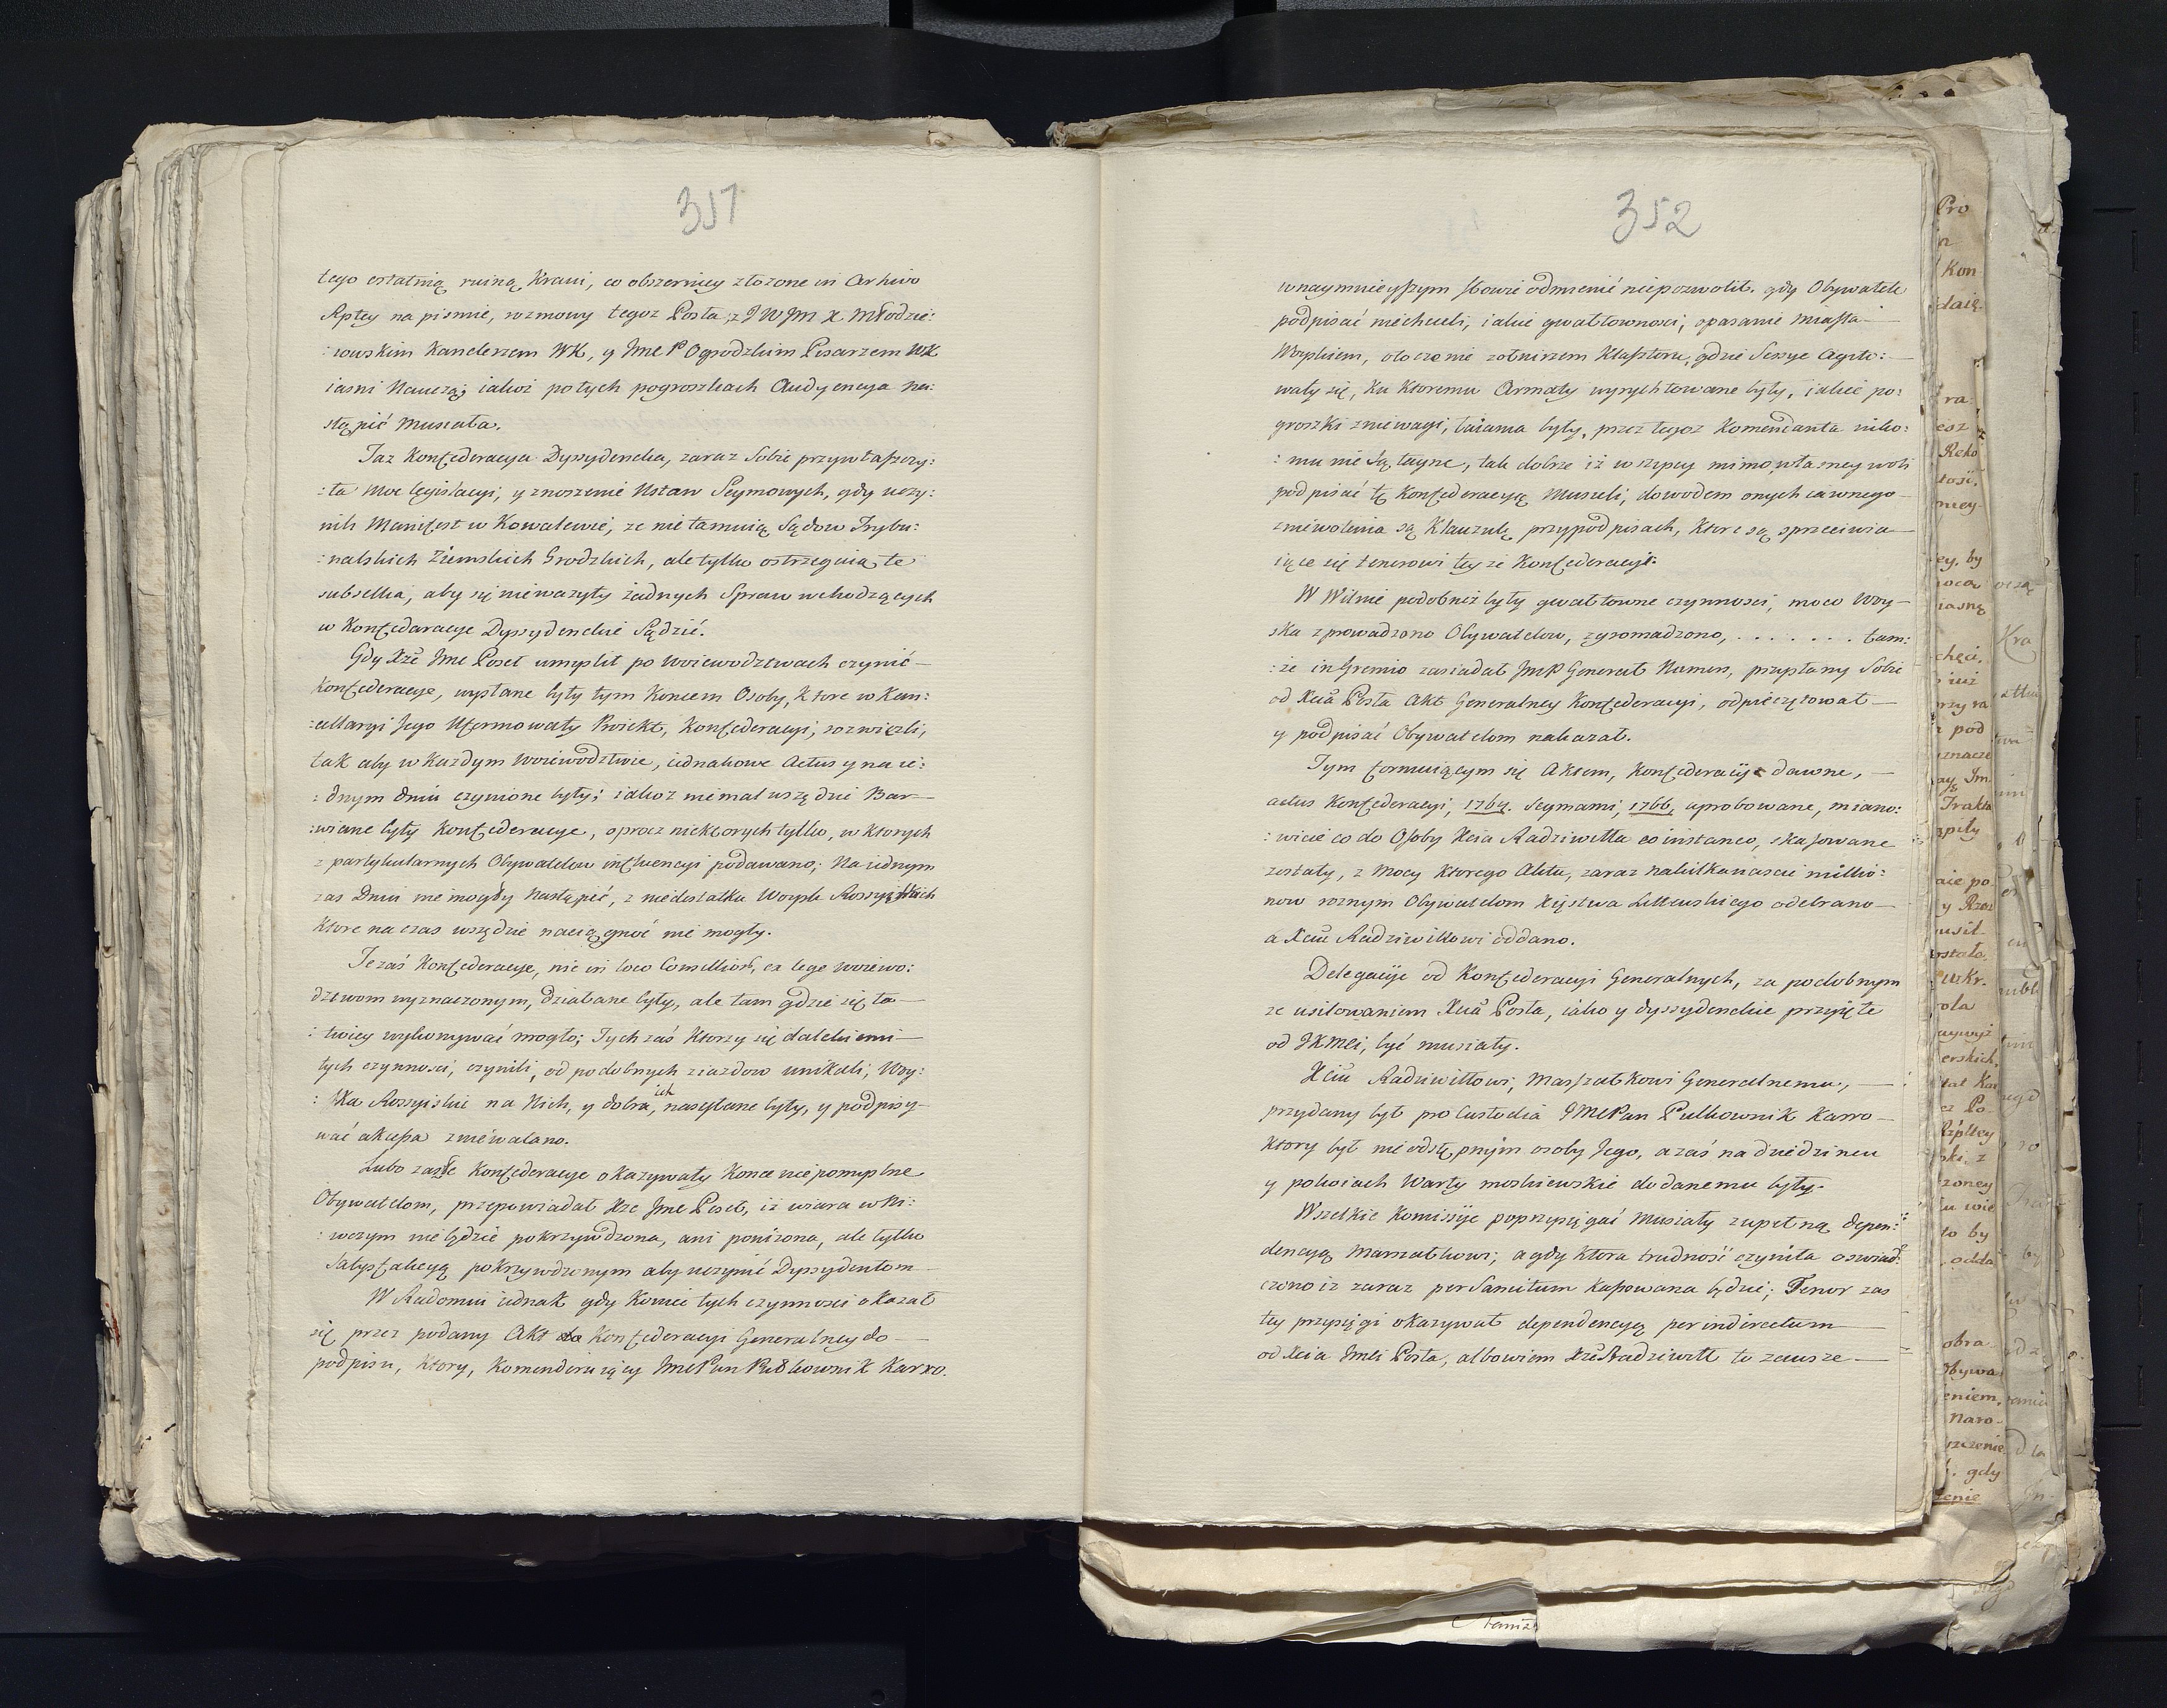 351
tego ostatnią ruiną Kraiu, co obszerniey złożone in Arhivo
Rptey na pismie, rozmowy tegoz Posła, z JWJm X. Młodzie:
:iowskim Kanclerzem WK, y Jme P Ogrodzkim Pisarzem WK
iasni Nauczą; iakoż po tych pogroszkach Audyencya na:
stąpić Musiała.
Taz Konfederacya Dyssydencka, zaraz Sobie przywłaszczy:
:ła Moc legislacyi, y znoszenie Ustaw Seymowych, gdy uczy:
nili Manifest w Kowalewie, ze nie tamuią Sądow Trybu:
:nalskich Ziemskich Grodzkich, ale tylko ostrzegaią te
subsellia, aby się nieważyły żadnych Spraw wchodzących
w Konfedaracye Dyssydenckie Sądzić.
Gdy Xże Jme Poseł umyslił po Woiewodztwach czynić —
Konfederacye, wysłane były tym Koncem Osoby, Ktore w Kan:
:cellaryi Jego Uformowały Proiekt, Konfederacyi, rozwiezli,
tak aby w Kazdym Woiewodztwie, iednakowe Actus y na ie:
:dnym dniu czynione były; iakoz niemal wszędzie Bar—
:wiane były Konfederacye, oprocz niektorych tylko, w Ktorych
z partykularnych Obywatelow influencyi podawano; Na iednym
zas Dniu nie mogły Nastąpić, z niedostatku Woysk Rossyiskich
Ktore na czas wszędzie naciągnąć nie mogły.
Te zaś Konfederacye, nie in loco Consiliorū, ex lege Woiewo:
dztwom wyznaczonym, działane były, ale tam gdzie się ła—
:twiey wykonywać mogło; Tych zaś Ktorzy się dalekiemi—
tych czynnosci, czynili, od podobnych ziazdow unikali; Woy:
:ska Rossyiskie na Nich, y dobra, ich nasyłane były, y podpisy—
wać akcessa zniewalano.
Lubo zaś te Konfederacye okazywały Konce niepomyslne
Obywatelom, przepowiadał Xże Jme Poseł, iż wiara w Ni:
:wczym nie będzie pokrzywdzona, ani poniżona, ale tylko
Satysfakcyą pokrzywdzonym aby uczynić Dyssydentom—
W Radomiu iednak gdy Koniec tych czynnosci okazał
się przez podany Akt do Konfederacyi Generalney do—
podpisu, Ktory, Komenderuiący Jme Pan Pułkownik Karro.
352
w naymnieyszym słowie odmienić niepozwolił. gdy Obywatele
podpisać niechcieli, iakie gwałtownosci, opasanie Miasta—
Woyskiem, otoczenie zołnirzem Klasztoru, gdzie Sessye Agito:—
wały się, Ku Ktoremu Armaty wyrychtowane były, iakie po:
groszki zniewagi, łaiania były, przez tegoz Komendanta niko:
:mu nie są tayne, tak dobrze iż wszyscy mimo własney woli
podpisać tę Konfederacyą Musieli, dowodem onych iawnego—
zniewolenia są Klauzule, przypodpisach, Ktore są sprzeciwia
iące się tenorowi teyze Konfederacyi:
W Wilnie podobnież były gwałtowne czynnosci, moco Woy—
ska zprowadzono Obywatelow, zgromadzono, . . . . . . . tam:
:że in Gremio zasiadał Jm P Generał Numen, przysłany Sobie
od Xcia Posła Akt Generalney Konfederacyi, odpieczętował —
y podpisać Obywatelom nakazał.
Tym formuiącym się Aktem, Konfederacye dawne, —
actus Konfederacyi, 1764. Seymami, 1766, aprobowane, miano:
:wicie co do Osoby Xcia Radziwiłła eo instanco, skasowane
zostały, z Mocy Ktorego Aktu, zaraz nakilkanascie millio:
now roznym Obywatelom Xięstwa Littewskiego odebrano—
a Xciu Radziwiłłowi oddano.
Delegacye od Konfederacyi Generalnych, za podobnym
ze usiłowaniem Xcia Posła, iako y dyssydenckie przyięte
od JKMci, być musiały.
Xciu Radziwiłłowi, Marszałkowi Generalnemu, —
przydany był pro Custodia JMCPan Pułkownik Karro—
Ktory był nieodstępnym osoby Jego, a zaś na dziedzincu
y pokoiach Warty moskiewskie dodanemu były.
Wszelkie Komissye poprzysięgać Musiały zupełną depen:
dencyą Marszałkowi; a gdy Ktora trudność czyniła oswiad:
czono iż zaraz per Sancitum Kassowana będzie; Tenor zas
tey przysięgi okazywał dependencyą per indirectum—
od Xcia Jmci Posła, albowiem Xże Radziwiłł to zawsze—